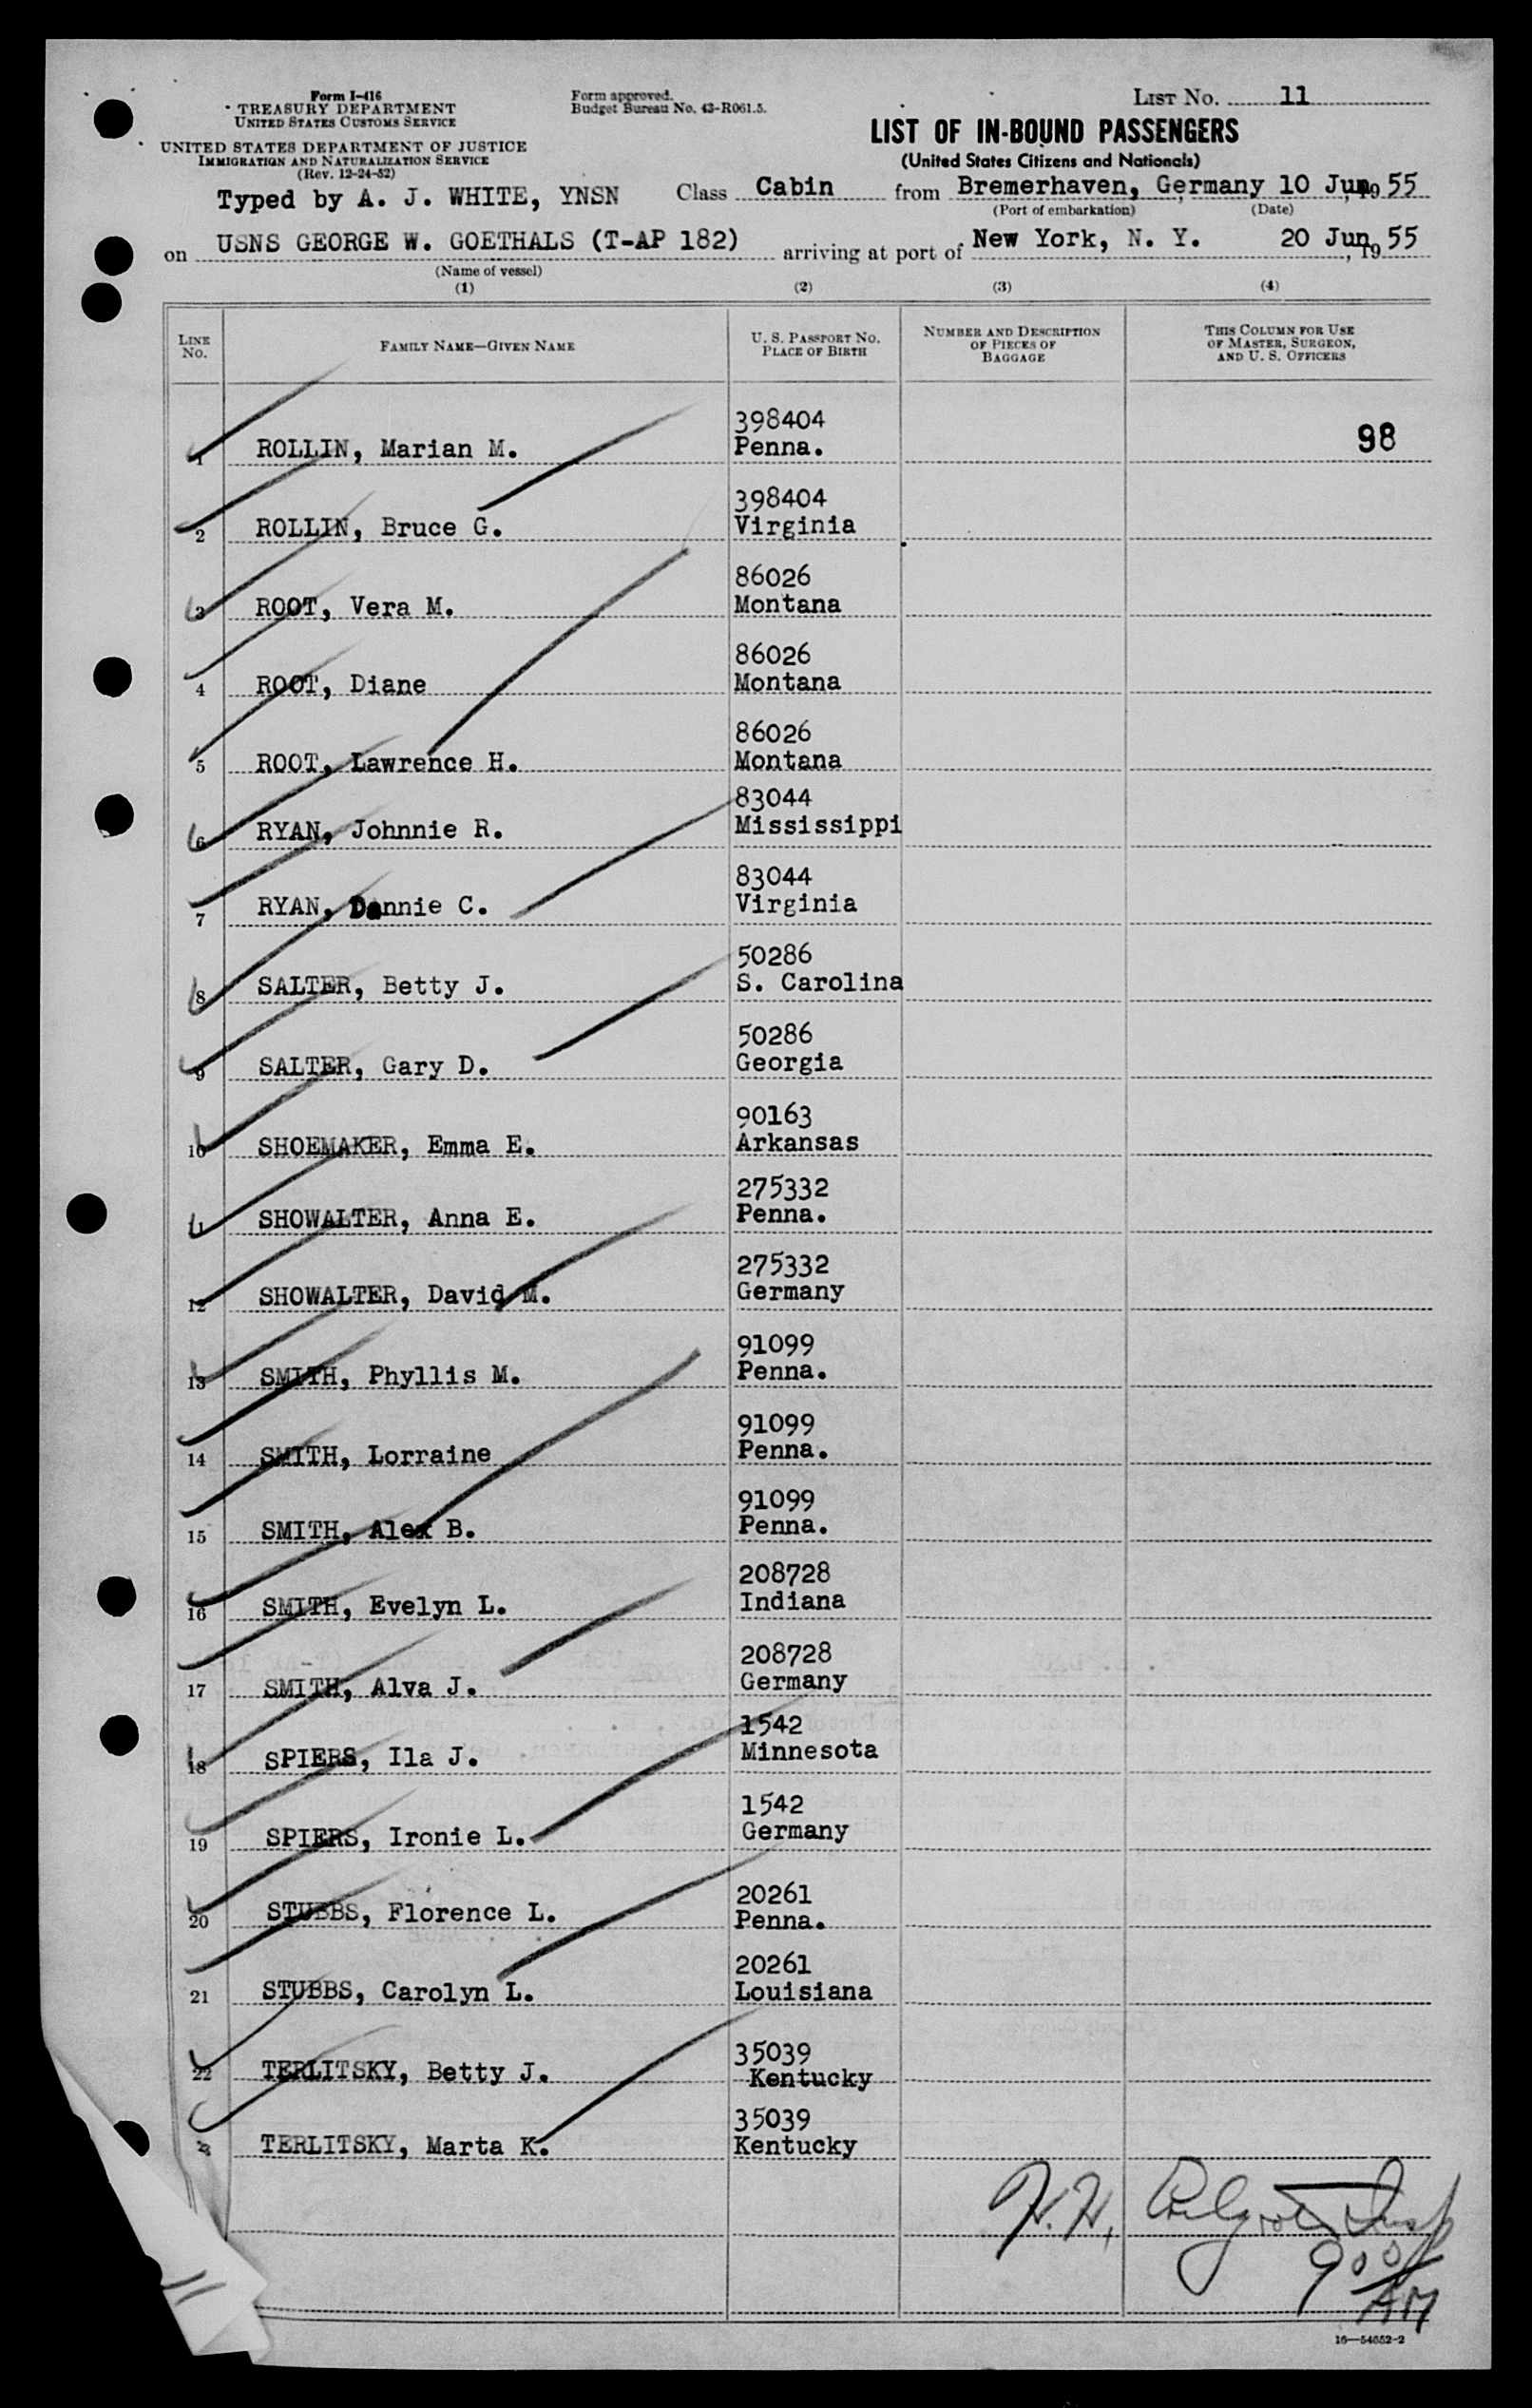 Form I-416
TREASURY DEPARTMENT
UNITED STATES CUSTOMS SERVICE
UNITED STATES DEPARTMENT OF JUSTICE
IMMIGRATION AND NATURALIZATION SERVICE
(Rev. 12-24-52)
Form approved.
Budget Bureau No. 43-R061.5.
LIST NO. 11
LIST OF IN-BOUND PASSENGERS
(United States Citizens and Nationals)
Typed by A. J. WHITE, YNSN Class Cabin from Bremerhaven, Germany 10 Jun, 1955
(Port of embarkation) (Date)
on USNS GEORGE W. GOETHALS (T-AP 182) arriving at port of New York, N. Y. 20 Jun, 1955
(Name of vessel)
(1) (2) (3) (4)
LINE NO. FAMILY NAME—GIVEN NAME U. S. PASSPORT NO. PLACE OF BIRTH NUMBER AND DESCRIPTION OF PIECES OF BAGGAGE THIS COLUMN FOR USE OF MASTER, SURGEON, AND U. S. OFFICERS
398404
1 ROLLIN, Marian M. Penna. 98
398404
2 ROLLIN, Bruce G. Virginia
86026
3 ROOT, Vera M. Montana
86026
4 ROOT, Diane Montana
86026
5 ROOT, Lawrence H. Montana
83044
6 RYAN, Johnnie R. Mississippi
83044
7 RYAN, Dannie C. Virginia
50286
8 SALTER, Betty J. S. Carolina
50286
9 SALTER, Gary D. Georgia
90163
10 SHOEMAKER, Emma E. Arkansas
275332
11 SHOWALTER, Anna E. Penna.
275332
12 SHOWALTER, David M. Germany
91099
13 SMITH, Phyllis M. Penna.
91099
14 SMITH, Lorraine Penna.
91099
15 SMITH, Alex B. Penna.
208728
16 SMITH, Evelyn L. Indiana
208728
17 SMITH, Alva J. Germany
1542
18 SPIERS, Ila J. Minnesota
1542
19 SPIERS, Ironie L. Germany
20261
20 STUBBS, Florence L. Penna.
20261
21 STUBBS, Carolyn L. Louisiana
35039
22 TERLITSKY, Betty J. Kentucky
35039
23 TERLITSKY, Marta K. Kentucky
Insp
900
AM
11
16—54652-2